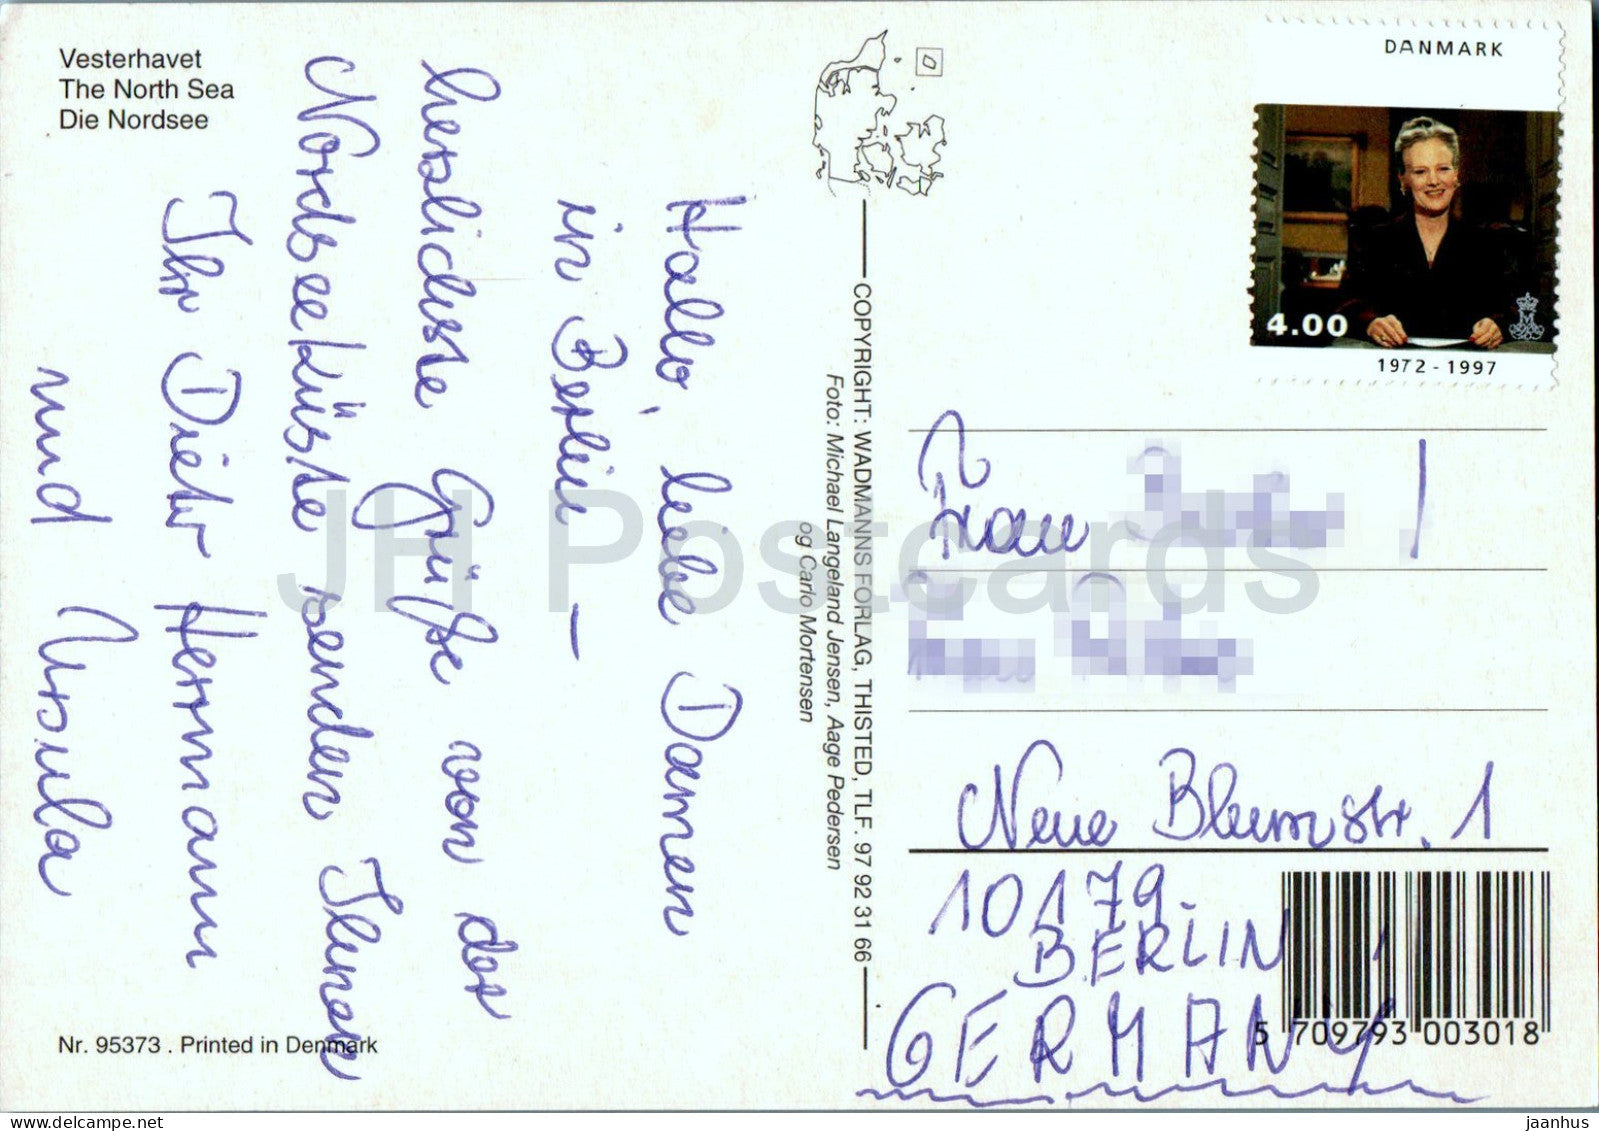 Vesterhavet
The North Sea
Die Nordsee
Hallo, liebe Damen
in Berlin –
herzlichste Grüße von der
Nordseeküste senden Ihnen
Ihr Dieter Hermann
und Ursula
Nr. 95373 . Printed in Denmark
COPYRIGHT: WADMANNS FORLAG, THISTED, TLF. 97 92 31 66
Foto: Michael Langeland Jensen, Aage Pedersen
og Carlo Mortensen
DANMARK
4.00
1972 - 1997
Frau
Neue Blumstr. 1
10179
BERLIN
GERMANY
5 709793 003018
JH Postcards
jaanhus